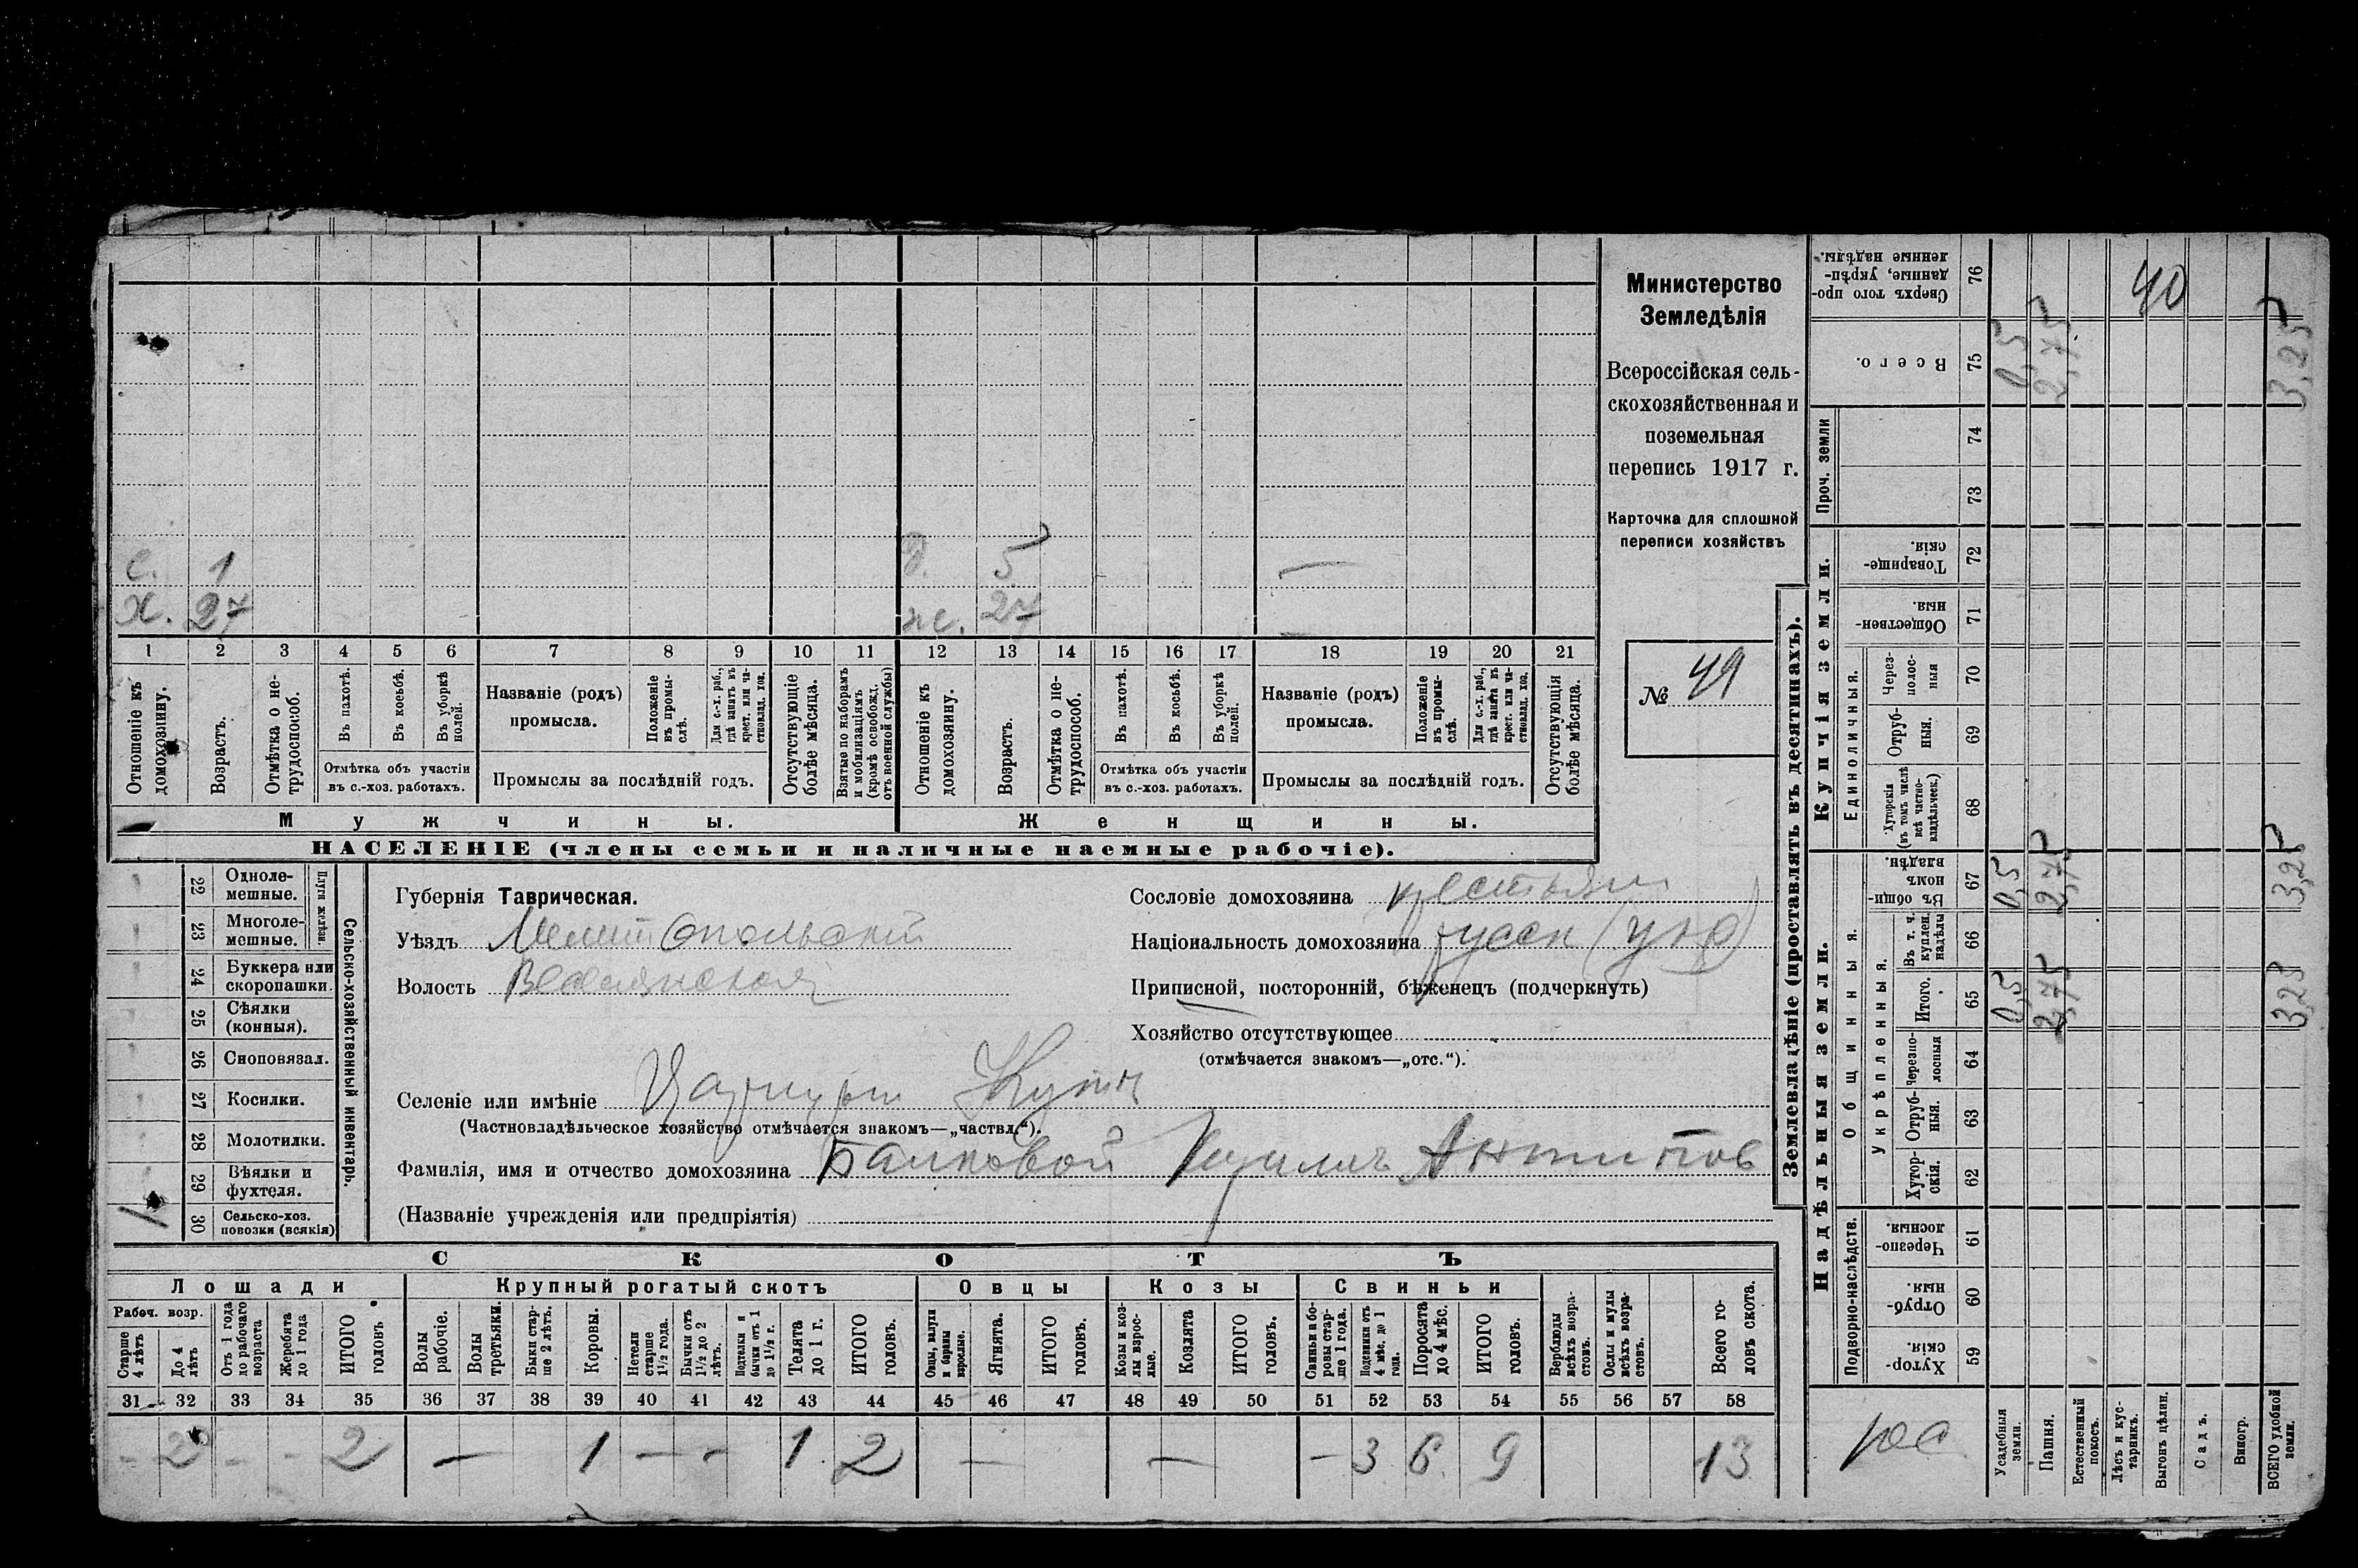 с. 1 д. 5 —
х. 27 ж. 27 —
1 2 3 4 5 6 7 8 9 10 11 12 13 14 15 16 17 18 19 20 21
Отношеніе къ домохозяину.
Возрастъ.
Отмѣтка о не-трудоспособ.
Въ пахотѣ.
Въ косьбѣ.
Въ уборкѣ полей.
Отмѣтка объ участіи
въ с.-хоз. работахъ.
Названіе (родъ)
промысла.
Положеніе въ промы-слѣ.
Для с.-х. раб., гдѣ занятъ въ крест. или ча-стновлад. хоз.
Промыслы за послѣдній годъ.
Отсутствующіе болѣе мѣсяца.
Взятые по наборамъ и мобилизаціямъ (кромѣ освобожд. отъ военной службы)
Отношеніе къ домохозяину.
Возрастъ.
Отмѣтка о не-трудоспособ.
Въ пахотѣ.
Въ косьбѣ.
Въ уборкѣ полей.
Отмѣтка объ участіи
въ с.-хоз. работахъ.
Названіе (родъ)
промысла.
Положеніе въ промы-слѣ.
Для с.-х. раб., гдѣ занята въ крест. или ча-стновлад. хоз.
Промыслы за послѣдній годъ.
Отсутствующія болѣе мѣсяца.
Мужчины. Женщины.
НАСЕЛЕНІЕ (члены семьи и наличные наемные рабочіе).
Министерство
Земледѣлія
Всероссійская сель-
скохозяйственная и
поземельная
перепись 1917 г.
Карточка для сплошной
переписи хозяйствъ
№ 49
Сельско-хозяйственный инвентарь.
Плуги желѣзн.
22 Одноле-мешные.
23 Многоле-мешные.
24 Буккера или скоропашки.
25 Сѣялки (конныя).
26 Сноповязал.
27 Косилки.
28 Молотилки.
29 Вѣялки и фухтеля.
1 30 Сельско-хоз. повозки (всякія)
Губернія Таврическая.
Уѣздъ Мелитопольскій
Волость Веселянская
Селеніе или имѣніе
(Частновладѣльческое хозяйство отмѣчается знакомъ—„частвл.“).
Фамилія, имя и отчество домохозяина Антипов
(Названіе учрежденія или предпріятія)
Сословіе домохозяина крестьян
Національность домохозяина русск (укр)
Приписной, посторонній, бѣженецъ (подчеркнуть)
Хозяйство отсутствующее
(отмѣчается знакомъ—„отс.“).
СКОТЪ
Лошади Крупный рогатый скотъ Овцы Козы Свиньи
Рабоч. возр.
Старше 4 лѣтъ
До 4 лѣтъ
Отъ 1 года до рабочаго возраста
Жеребята до 1 года
ИТОГО головъ
Волы рабочіе.
Волы третьяки.
Быки стар-ше 2 лѣтъ.
Коровы.
Нетели старше 1½ года.
Бычки отъ 1½ до 2 лѣтъ.
Подтелки и бычки отъ 1 до 1½ г.
Телята до 1 г.
ИТОГО головъ.
Овцы, валухи и бараны взрослые.
Ягнята.
ИТОГО головъ.
Козы и коз-лы взрос-лые.
Козлята
ИТОГО головъ.
Свиньи и бо-ровы стар-ше 1 года.
Подсвинки отъ 4 мѣс. до 1 года.
Поросята до 4 мѣс.
ИТОГО головъ.
Верблюды всѣхъ возра-стовъ.
Ослы и мулы всѣхъ возра-стовъ.
Всего го-ловъ скота.
31 32 33 34 35 36 37 38 39 40 41 42 43 44 45 46 47 48 49 50 51 52 53 54 55 56 57 58
- 2 - - 2 — 1 — - 1 2 — — - 3 6 9 13
Землевладѣніе (проставлять въ десятинахъ).
Купчія земли.
Надѣльныя земли.
Сверхъ того про-данные, укрѣп-ленные надѣлы. 76 40
Всего. 75 0,5 2,75 3,25
Проч. земли 74
73
Товарище-скія. 72
Обществен-ныя. 71
Единоличныя.
Через-полос-ныя 70
Отруб-ныя. 69
Хуторскія (въ томъ числѣ всѣ частно-владѣльческ.) 68
Общинныя.
Въ общи-номъ владѣн. 67 0,5 2,75 3,25
Укрѣпленныя.
Въ т. ч. куплен. надѣлы 66
Итого. 65 0,5 2,75 3,25
Черезпо-лосныя 64
Отруб-ныя. 63
Хутор-скія. 62
Подворно-наслѣдств.
Черезпо-лосныя. 61
Отруб-ныя. 60
Хутор-скія. 59
Усадебныя земли.
Пашня.
Естественный покосъ.
Лѣсъ и кус-тарникъ.
Выгонъ цѣлин.
Садъ.
Виногр.
ВСЕГО удобной земли.